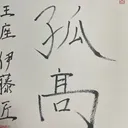 孤高
王座 伊藤匠